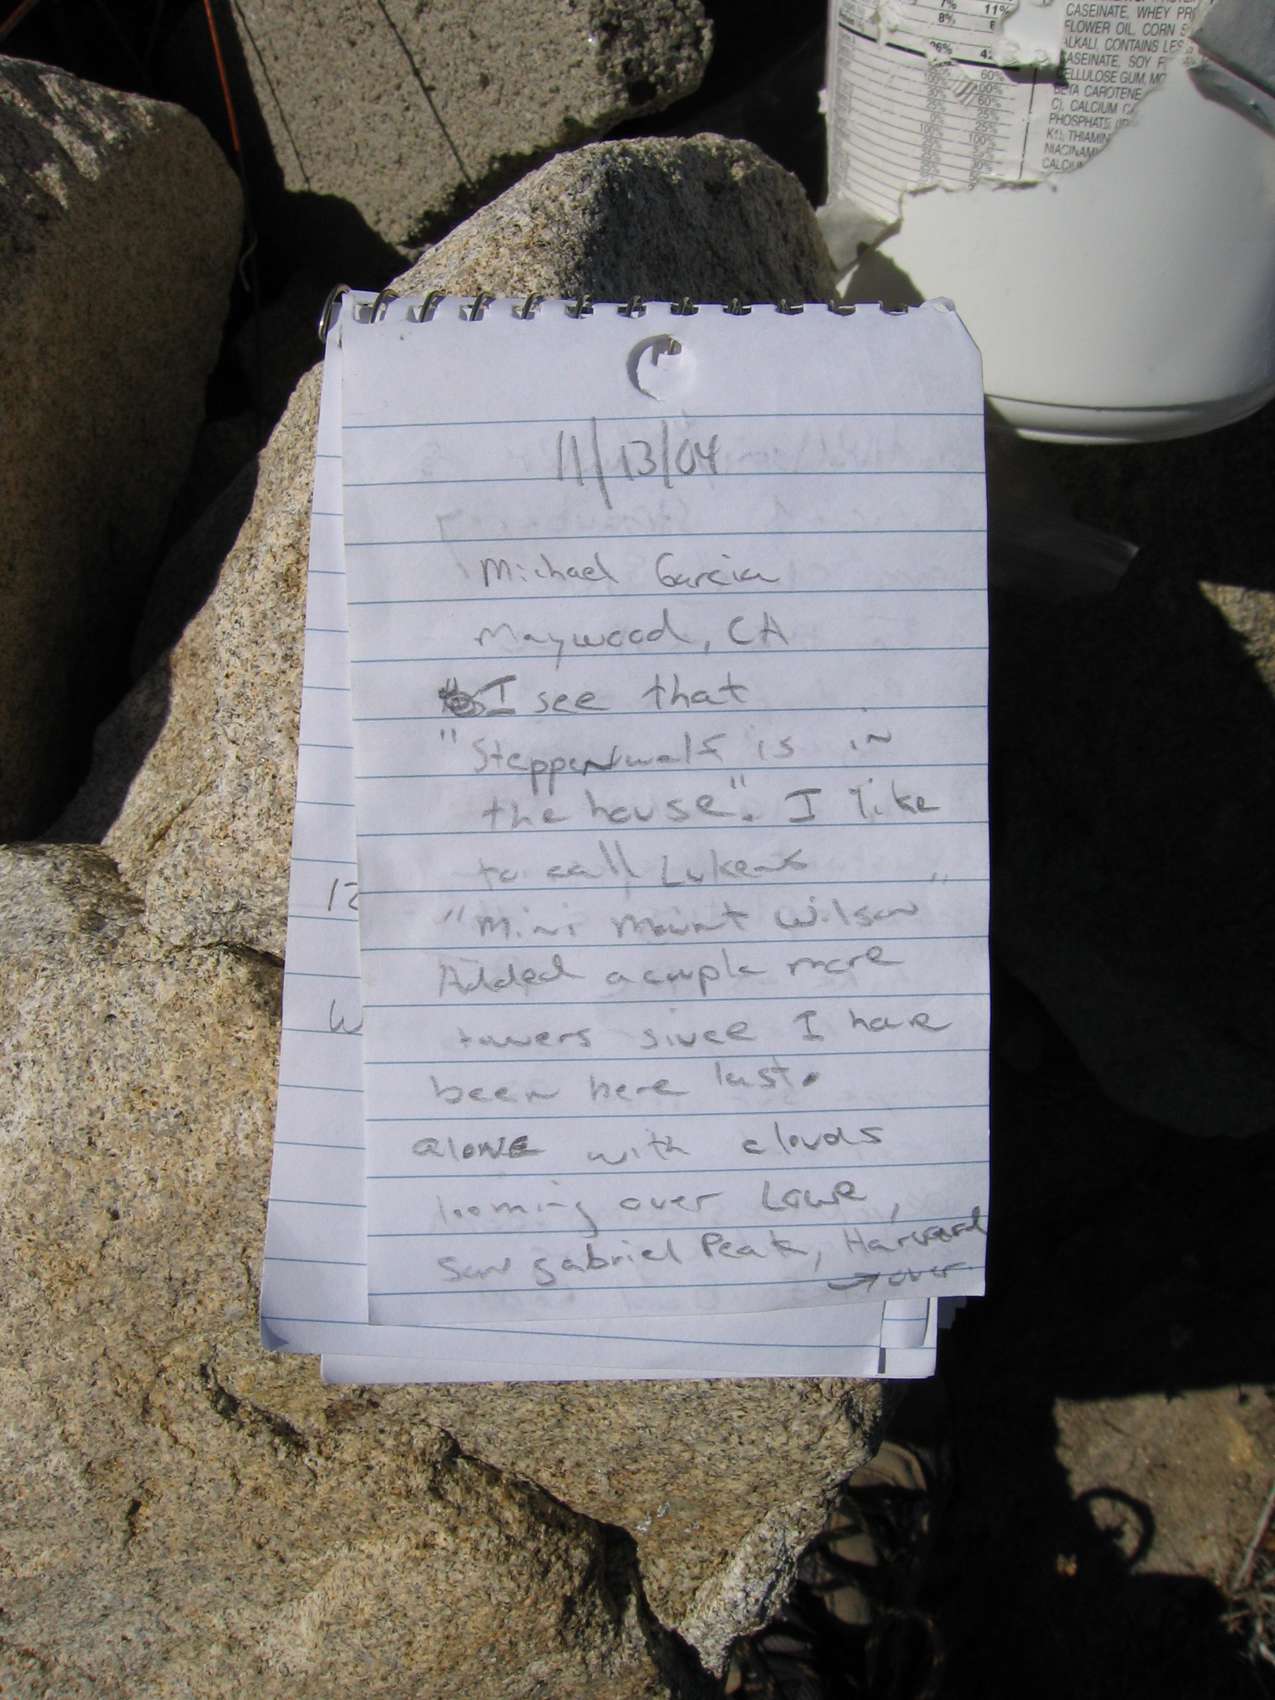 7% 11%
8%
CASEINATE, WHEY
FLOWER OIL, CORN
ALKALI, CONTAINS LES
CASEINATE, SOY
CELLULOSE GUM,
BETA CAROTENE,
C), CALCIUM
PHOSPHATE
K1), THIAMIN
NIACINAM
CALCIU
60%
100%
60%
25%
25%
100%
11/13/04
Michael Garcia
Maywood, CA
I see that
"Steppenwolf is in
the house". I like
to call Lukens
"Mini Mount Wilson"
Added a couple more
towers since I have
been here last.
alone with clouds
looming over Lowe,
San gabriel Peak, Harvard
→ over
12
W